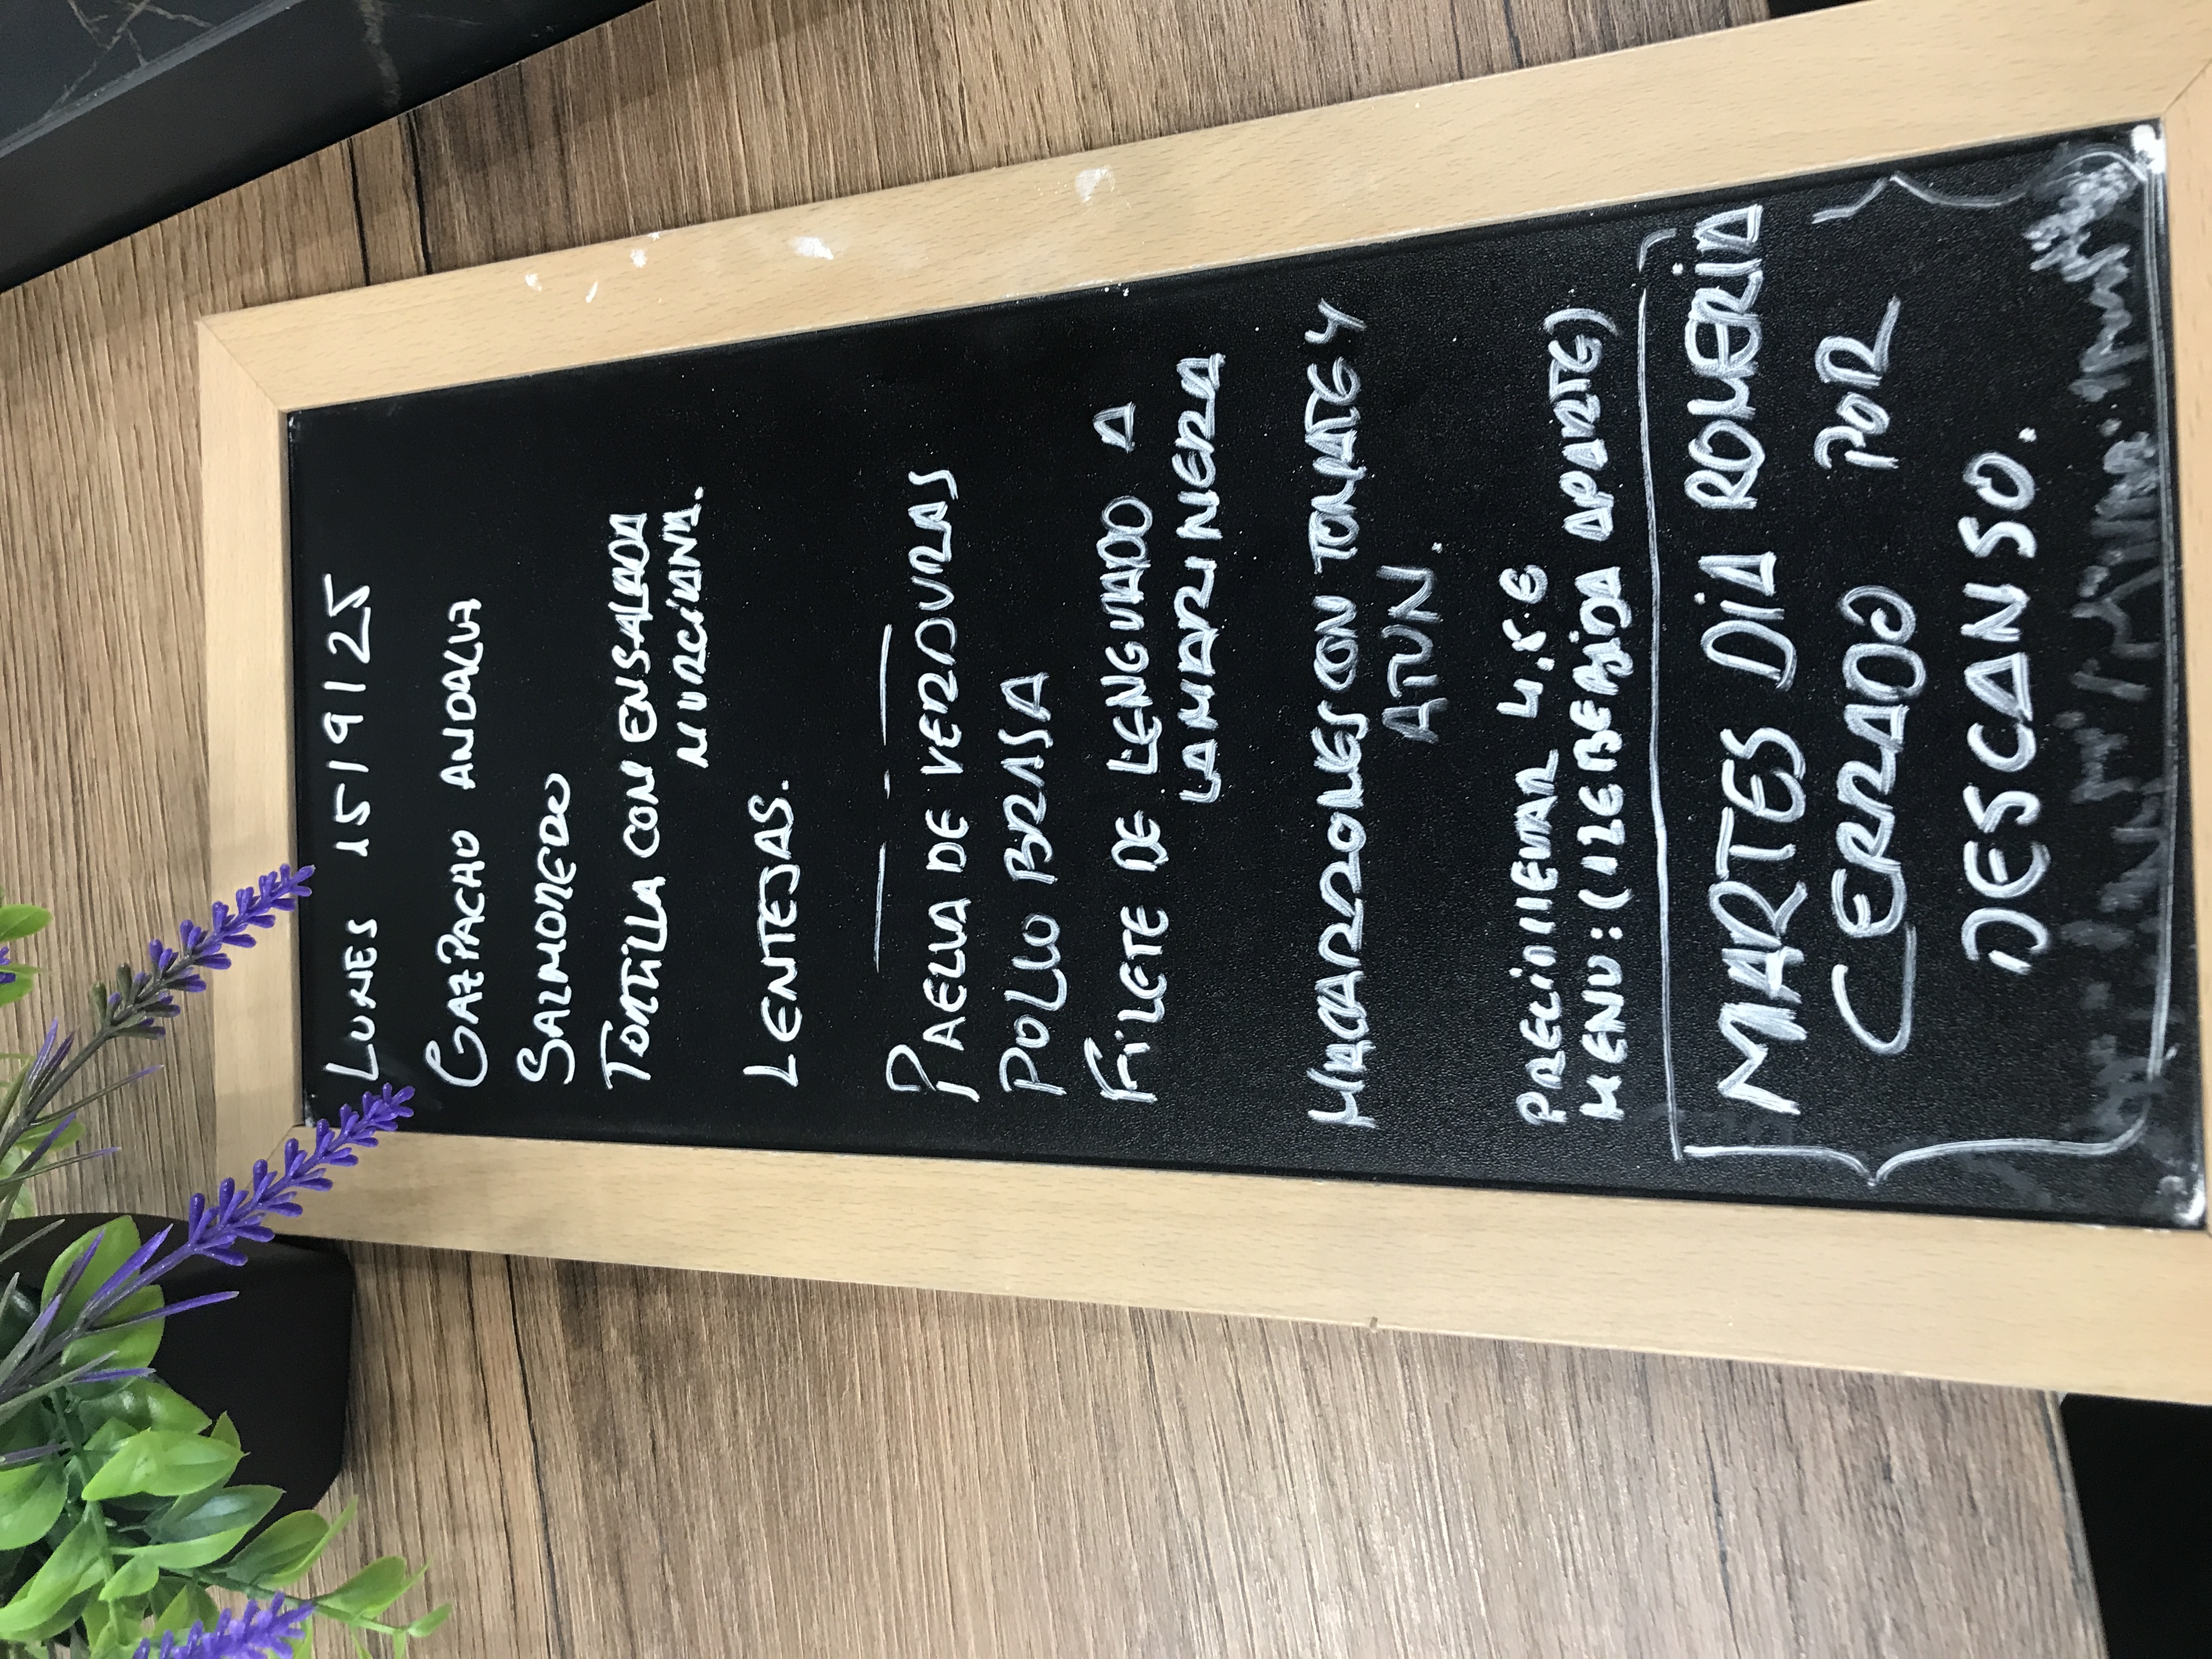 LUNES 15/9/25
GAZPACHO ANDALUZ
SALMOREJO
TORTILLA CON ENSALADA
MURCIANA.
LENTEJAS.
PAELLA DE VERDURAS
POLLO BRASA
FILETE DE LENGUADO A
LA MARINERA
MACARRONES CON TOMATE Y
ATUN.
PRECIO LLEVAR
MENU: (12€ BEBIDA APARTE)
MARTES DIA ROMERIA
CERRADO POR
DESCANSO.